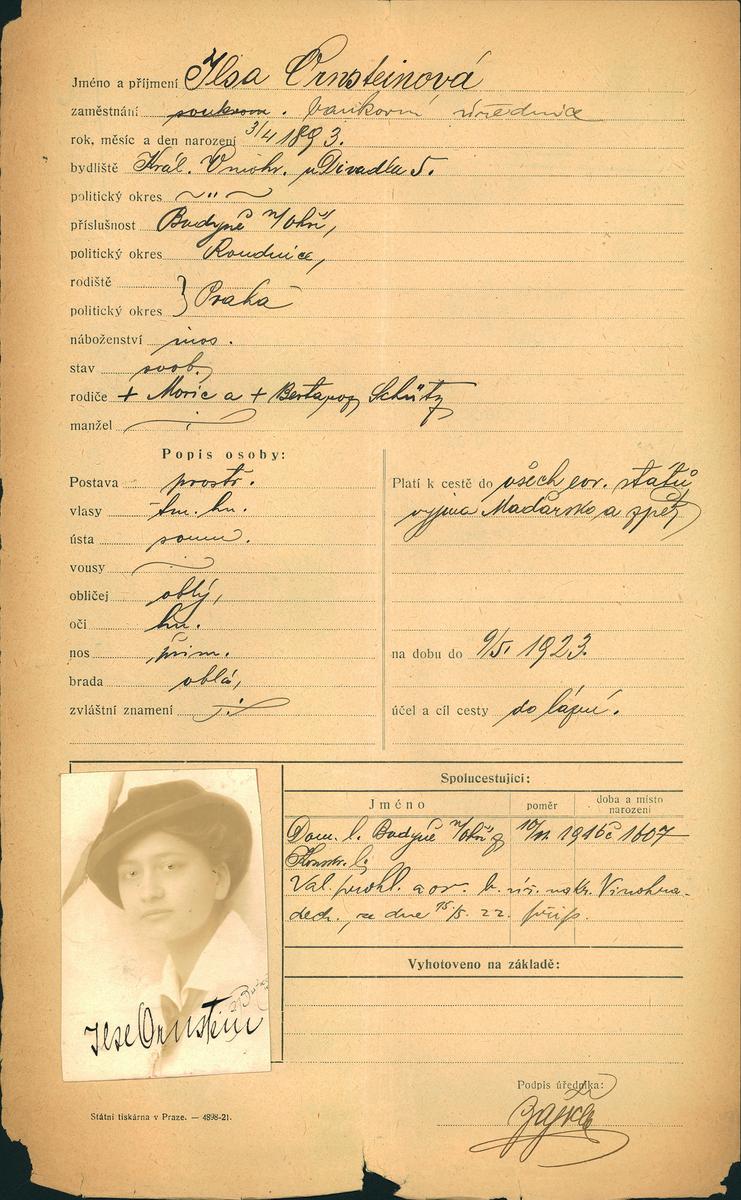 Jméno a příjmení Ilsa Ornsteinová
zaměstnání soukrom. bankovní úřednice
rok, měsíc a den narození 3/4 1893.
bydliště Král. Vinohr. u Divadla 5.
politický okres — " —
příslušnost Budyně n/Ohří,
politický okres Roudnice,
rodiště
politický okres } Praha
náboženství mos.
stav svob.
rodiče + Moric a + Berta roz. Schütz
manžel
Popis osoby:
Postava prostř.
vlasy tm. hn.
ústa soum.
vousy
obličej oblý,
oči hn.
nos přim.
brada oblá,
zvláštní znamení
Platí k cestě do všech evr. států
vyjma Maďarsko a zpět
na dobu do 9/5. 1923.
účel a cíl cesty do lázní.
Spolucestující:
Jméno poměr doba a místo narození
Dom. l. Budyně n/Ohří z 10/VI. 1916 č 1607
Val. prohl. a or. b. na Kr. Vinohra-
dech, ze dne 15./5. 22. přip.
Vyhotoveno na základě:
Ilse Ornstein
Podpis úředníka:
Státní tiskárna v Praze. — 4898-21.